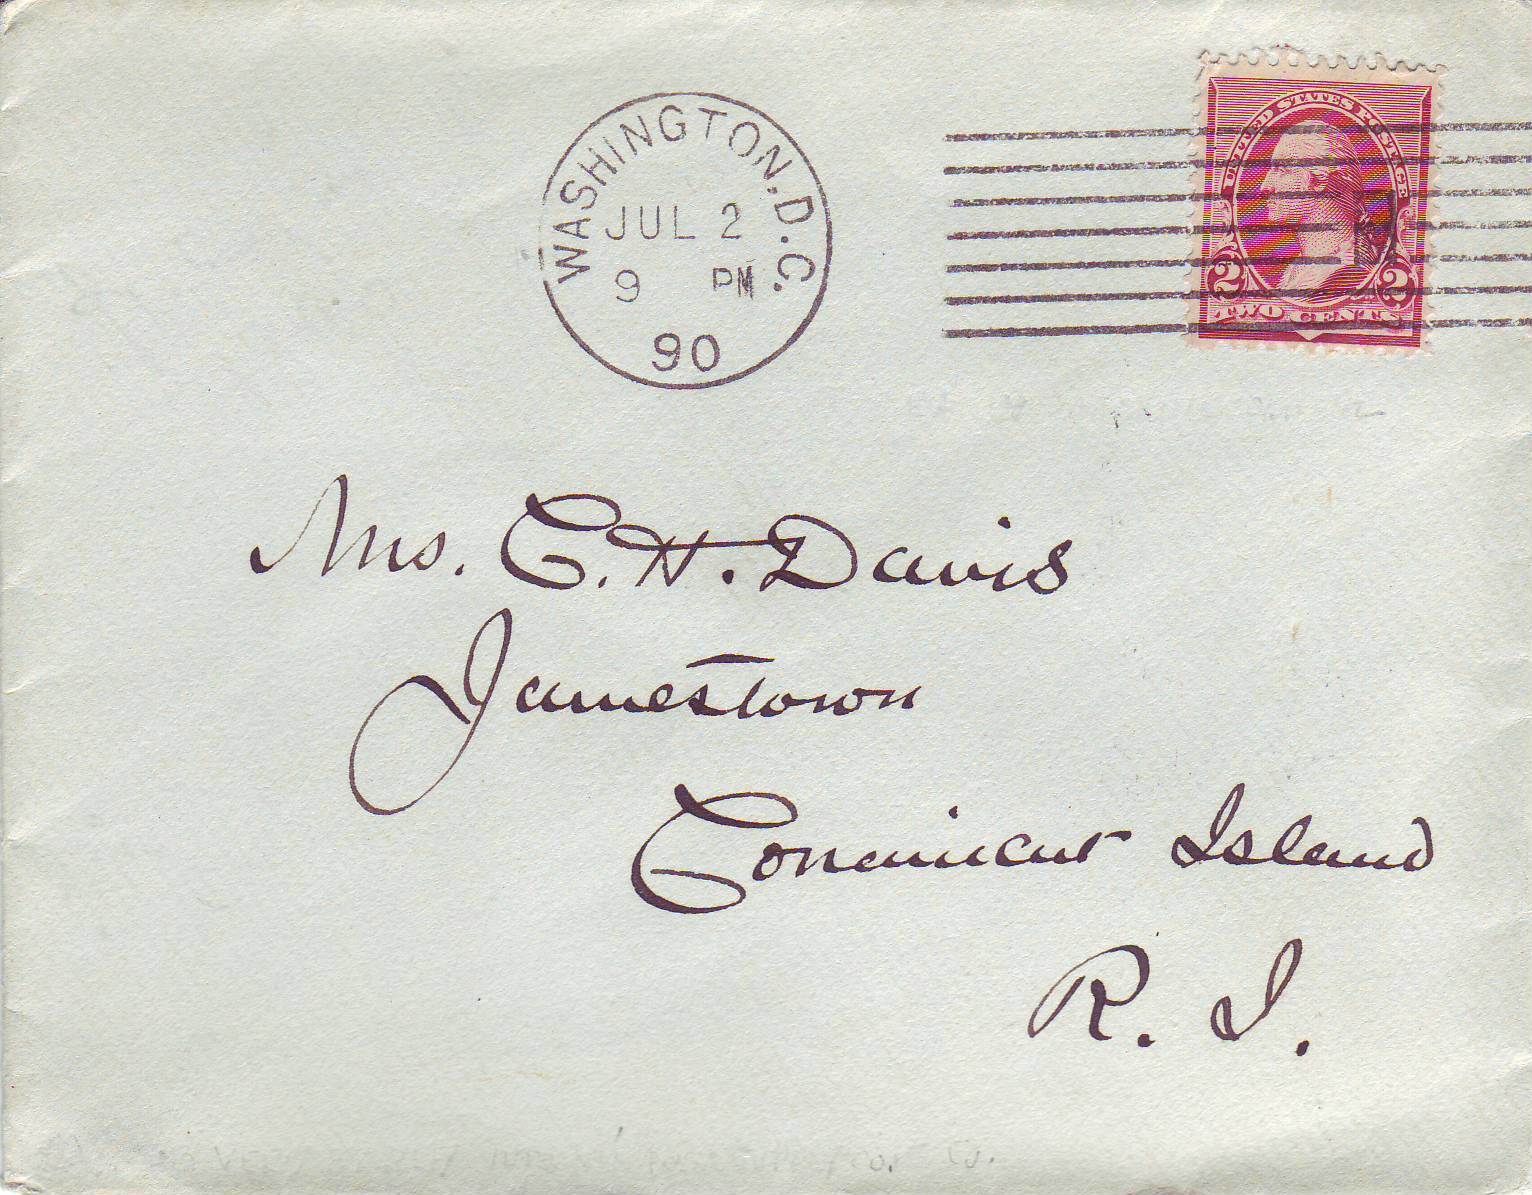 WASHINGTON, D.C.
JUL 2
9 PM
90
UNITED STATES POSTAGE
2 2
TWO CENTS
Mrs. C. H. Davis
Jamestown
Conanicut Island
R. I.